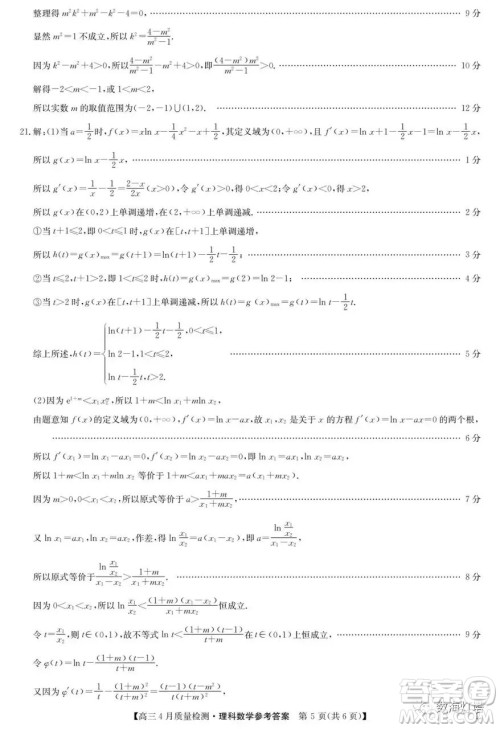 整理得 m²k²+m²−k²−4=0,……9 分
显然 m²=1 不成立,所以 k²=\frac{4-m²}{m²-1},……
因为 k²−m²+4>0,所以\frac{4-m²}{m²-1}−m²+4>0,即\frac{(4-m²)m²}{m²-1}>0,……10 分
解得−2<m<−1,或 1<m<2,
所以实数 m 的取值范围为(−2,−1)∪(1,2).……12 分
21.解:(1)当 a=\frac{1}{2}时,f(x)=xln x−\frac{1}{4}x²−x+\frac{1}{2},其定义域为(0,+∞),
所以 g(x)=ln x−\frac{1}{2}x,
所以 g′(x)=\frac{1}{x}−\frac{1}{2}=\frac{2-x}{2x}(x>0),令 g′(x)>0,得 0<x<2;令 g′(x)<0,得 x>2,
所以 g(x)在(0,2)上单调递增,在(2,+∞)上单调递减.……2 分
①当 t+1≤2 时,即 0<t≤1,g(x)在[t,t+1]上单调递增,
所以 h(t)=g(x)max=g(t+1)=ln(t+1)−\frac{1}{2}t−\frac{1}{2};……3 分
②当 t≤2,t+1>2,即 1<t≤2 时,h(t)=g(x)max=g(2)=ln 2−1;……4 分
③当 t>2 时,g(x)在[t,t+1]上单调递减,所以 h(t)=g(x)max=g(t)=ln t−\frac{1}{2}t.
综上所述,h(t)={ln(t+1)−\frac{1}{2}t−\frac{1}{2},0<t≤1, ln 2−1,1<t≤2, ln t−\frac{1}{2}t,t>2.……5 分
(2)因为 e^{1+m}<x₁x₂^m,所以 1+m<ln x₁+mln x₂.
由题意知 f(x)的定义域为(0,+∞),f′(x)=ln x−ax,故 x₁,x₂ 是关于 x 的方程 f′(x)=ln x−ax=0 的两个根,
……6 分
所以 f′(x₁)=ln x₁−ax₁=0,f′(x₂)=ln x₂−ax₂=0,即 ln x₁=ax₁,ln x₂=ax₂,
所以 1+m<ln x₁+mln x₂,等价于 1+m<ax₁+max₂=a(x₁+mx₂).
因为 m>0,0<x₁<x₂,所以原式等价于 a>\frac{1+m}{x₁+mx₂}.……7 分
又 ln x₁=ax₁,ln x₂=ax₂,作差,得 ln\frac{x₁}{x₂}=a(x₁−x₂),即 a=\frac{ln\frac{x₁}{x₂}}{x₁-x₂},
所以原式等价于\frac{ln\frac{x₁}{x₂}}{x₁-x₂}>\frac{1+m}{x₁+mx₂}.……8 分
因为 0<x₁<x₂,所以 ln\frac{x₁}{x₂}<\frac{(1+m)(x₁-x₂)}{x₁+mx₂}恒成立.
令 t=\frac{x₁}{x₂},则 t∈(0,1),故不等式 ln t<\frac{(1+m)(t-1)}{t+m}在 t∈(0,1)上恒成立.……9 分
令 φ(t)=ln t−\frac{(1+m)(t-1)}{t+m}.
又因为 φ′(t)=\frac{1}{t}−\frac{(1+m)²}{(t+m)²}=\frac{(t-1)(t-m²)}{t(t+m)²},
【高三4月质量检测·理科数学参考答案 第 5 页(共 6 页)】